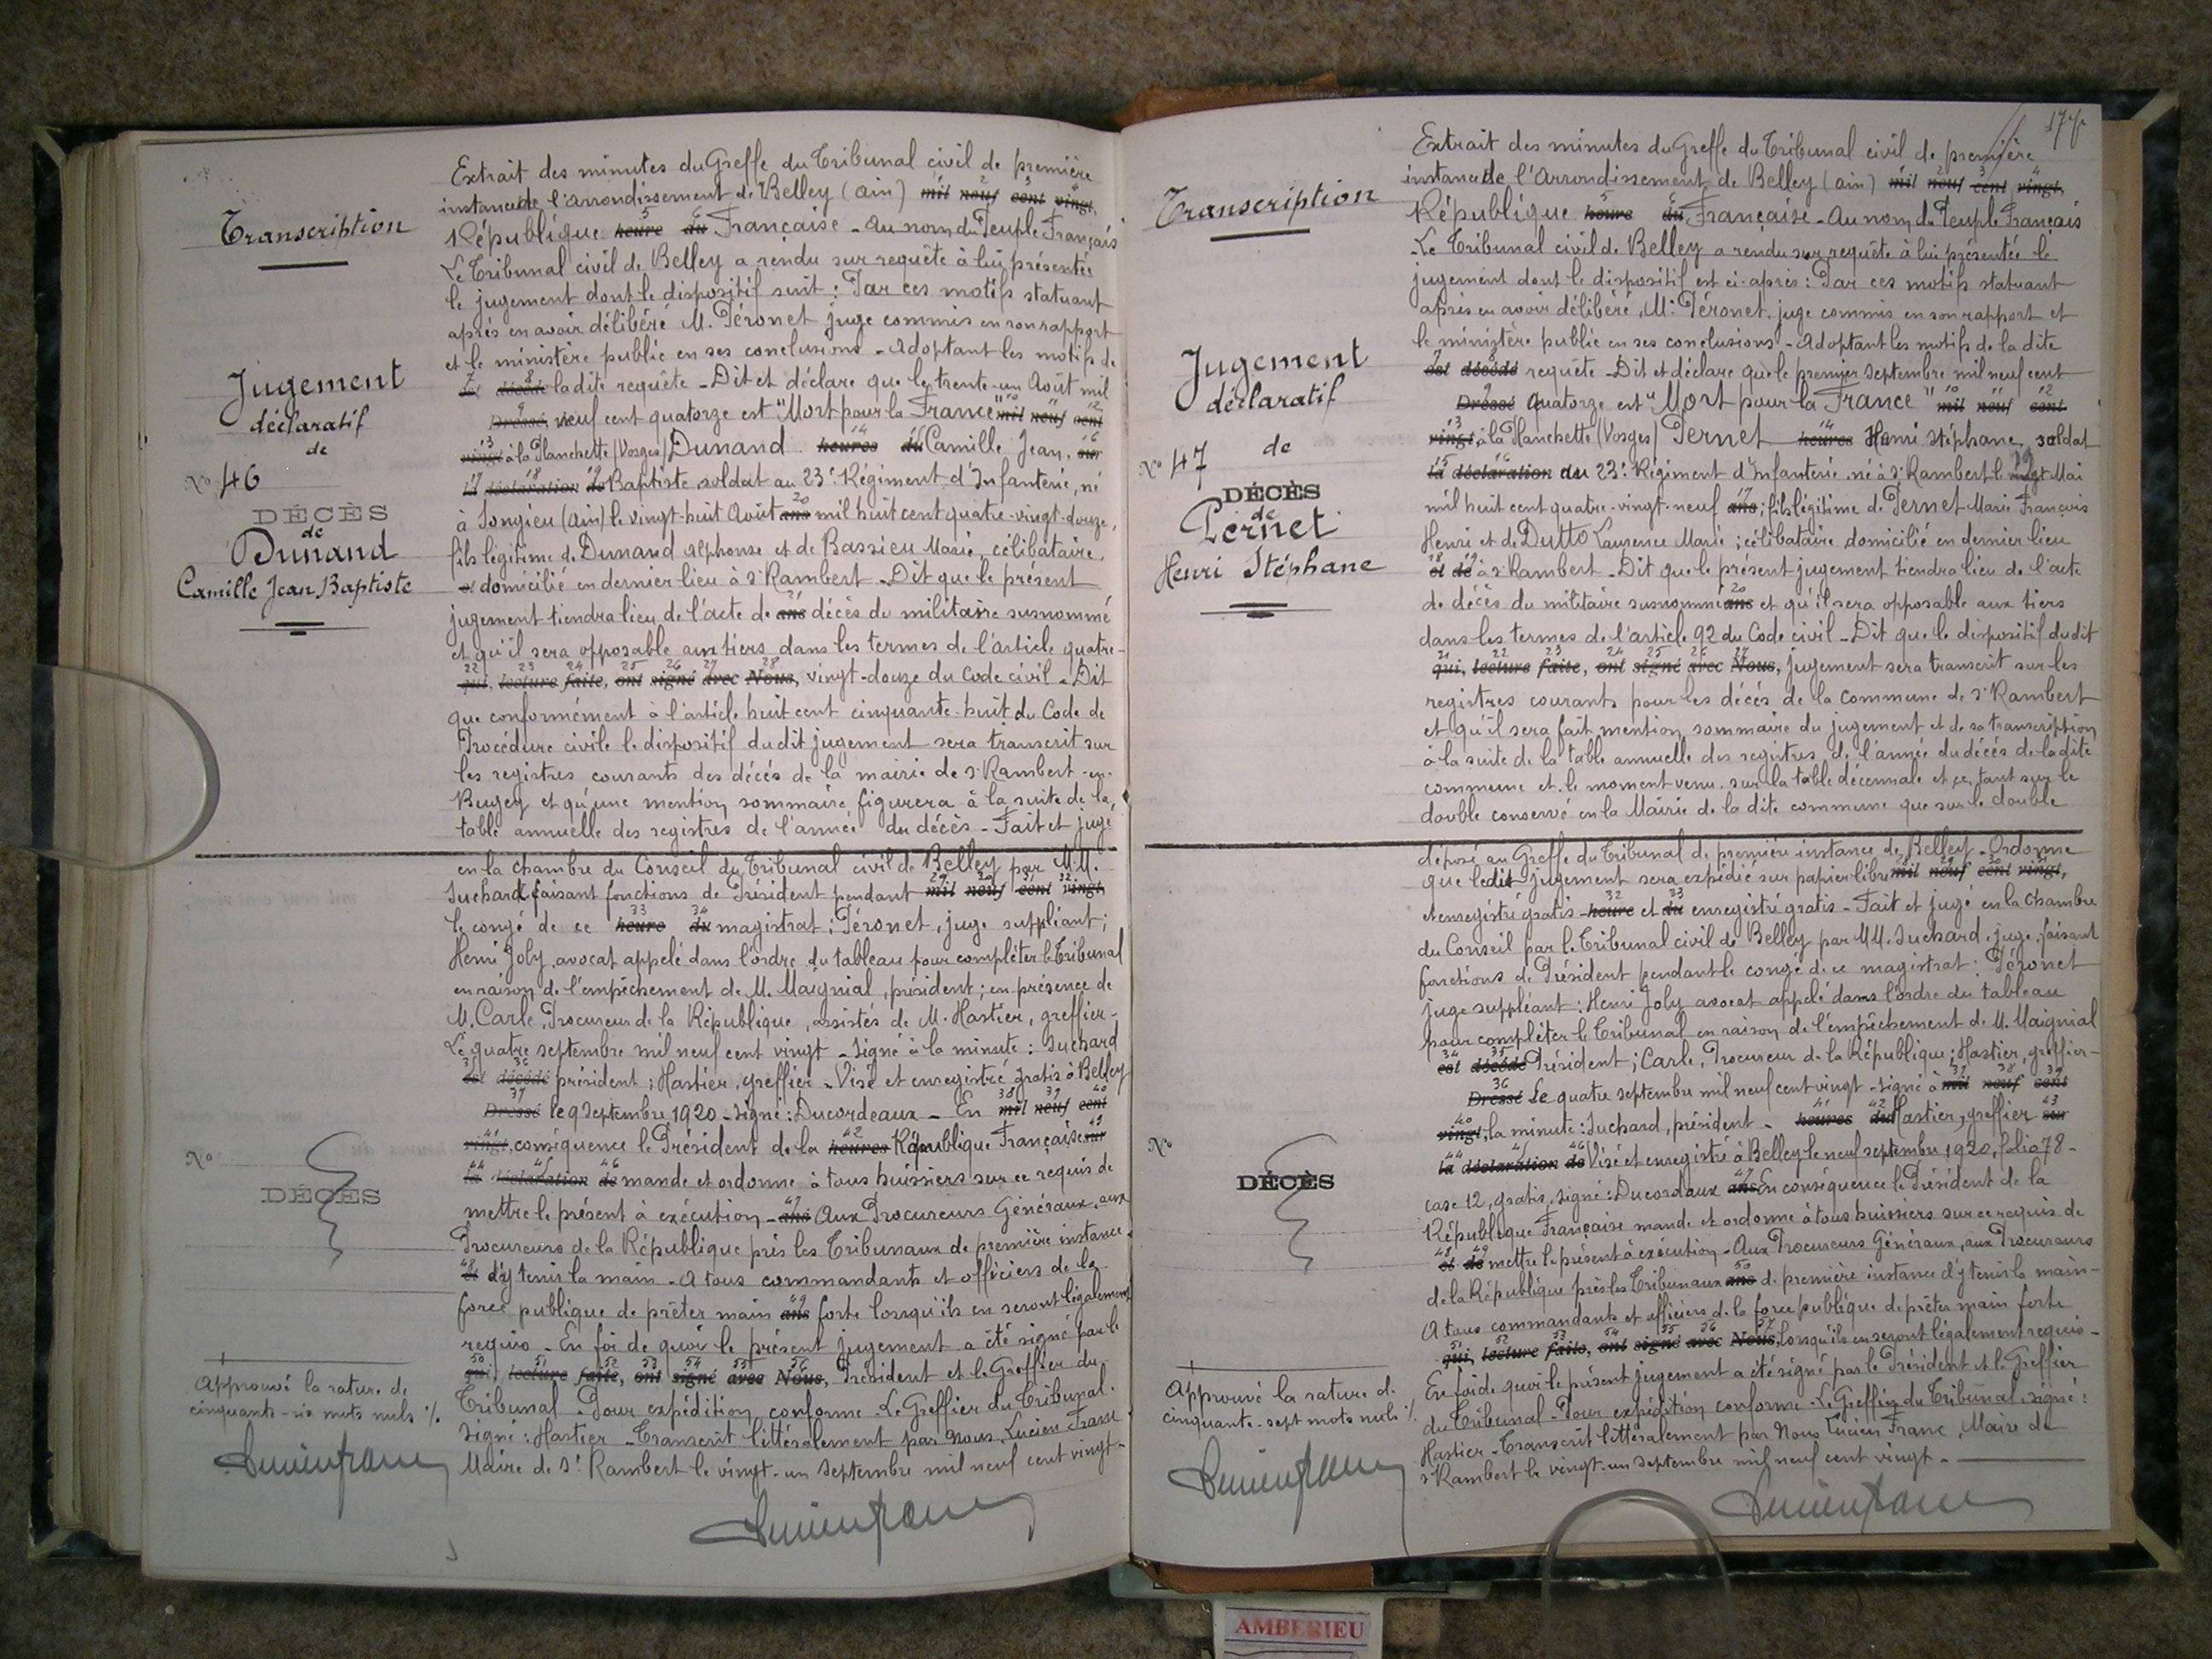 Transcription
Jugement
déclaratif
de
N° 46
DÉCÈS
de
Dunand
Camille Jean Baptiste
Extrait des minutes du Greffe du Tribunal civil de première
instance de l'arrondissement de Belley (Ain) mil neuf cent vingt,
République heure du Française _ Au nom du Peuple Français
Le Tribunal civil de Belley a rendu sur requête à lui présentée
le jugement dont le dispositif suit : Par ces motifs statuant
après en avoir délibéré M. Péronet juge commis en son rapport
et le ministère public en ses conclusions _ Adoptant les motifs de
est décédé la dite requête _ Dit et déclare que le trente-un Août mil
Dressé neuf cent quatorze est "Mort pour la France" mil neuf cent
vingt à la Planchette (Vosges) Dunand heures du Camille Jean, sur
la déclaration de Baptiste soldat au 23e Régiment d'Infanterie, né
à Songieu (Ain) le vingt-huit Août ans mil huit cent quatre-vingt-douze,
fils légitime de Dunand Alphonse et de Bassieu Marie, célibataire,
et domicilié en dernier lieu à St Rambert _ Dit que le présent
jugement tiendra lieu de l'acte de ans décès du militaire susnommé
et qu'il sera opposable aux tiers dans les termes de l'article quatre-
qui, lecture faite, ont signé avec Nous, vingt-douze du Code civil _ Dit
que conformément à l'article huit cent cinquante-huit du Code de
Procédure civile le dispositif du dit jugement sera transcrit sur
les registres courants des décès de la mairie de St Rambert-en-
Bugey et qu'une mention sommaire figurera à la suite de la
table annuelle des registres de l'année du décès _ Fait et jugé
en la chambre du Conseil du Tribunal civil de Belley par M.M.
Suchard faisant fonctions de Président pendant mil neuf cent vingt,
le congé de ce heure du magistrat ; Péronet, juge suppléant ;
Henri Joly, avocat appelé dans l'ordre du tableau pour compléter le Tribunal
en raison de l'empêchement de M. Maignial, président ; en présence de
M. Carle, Procureur de la République, assistés de M. Hastier, greffier _
Le quatre septembre mil neuf cent vingt _ Signé à la minute : Suchard
est décédé président ; Hastier, greffier _ Visé et enregistré gratis à Belley
Dressé le 9 Septembre 1920 _ Signé : Ducordeaux _ En mil neuf cent
vingt, conséquence le Président de la heures République Française sur
la déclaration de mande et ordonne à tous huissiers sur ce requis de
mettre le présent à exécution _ ans Aux Procureurs Généraux, aux
Procureurs de la République près les Tribunaux de première instance
et d'y tenir la main _ A tous commandants et officiers de la
force publique de prêter main ans forte lorsqu'ils en seront légalement
requis _ En foi de quoi le présent jugement a été signé par le
qui, lecture faite, ont signé avec Nous, Président et le Greffier du
Tribunal _ Pour expédition conforme _ Le Greffier du Tribunal.
Signé : Hastier _ Transcrit littéralement par Nous, Lucien Franc
Maire de St Rambert le vingt-un Septembre mil neuf cent vingt _
N°
DÉCÈS
Approuvé la rature de
cinquante-six mots nuls %.
Lucien Franc
Lucien Franc
Transcription
Jugement
déclaratif
de
N° 47
DÉCÈS
de
Pernet
Henri Stéphane
Extrait des minutes du Greffe du Tribunal civil de première
instance de l'Arrondissement de Belley (Ain) mil neuf cent vingt,
République heure du Française _ Au nom du Peuple Français
Le Tribunal civil de Belley a rendu sur requête à lui présentée le
jugement dont le dispositif est ci-après : Par ces motifs statuant
après en avoir délibéré, M. Péronet, juge commis en son rapport et
le ministère public en ses conclusions _ Adoptant les motifs de la dite
est décédé requête _ Dit et déclare que le premier Septembre mil neuf cent
Dressé quatorze est "Mort pour la France" mil neuf cent
vingt, à la Planchette (Vosges) Pernet heures Henri Stéphane, soldat
la déclaration au 23e Régiment d'Infanterie né à St Rambert le Mai
mil huit cent quatre-vingt-neuf ans ; fils légitime de Pernet Marie François
Henri et de Dutto Laurence Marie ; célibataire domicilié en dernier lieu
et de à St Rambert _ Dit que le présent jugement tiendra lieu de l'acte
de décès du militaire susnommé ans et qu'il sera opposable aux tiers
dans les termes de l'article 92 du Code civil _ Dit que le dispositif du dit
qui, lecture faite, ont signé avec Nous, jugement sera transcrit sur les
registres courants pour les décès de la commune de St Rambert
et qu'il sera fait mention sommaire du jugement et de sa transcription
à la suite de la table annuelle des registres de l'année du décès de la dite
commune et le moment venu sur la table décennale et ce, tant sur le
double conservé en la Mairie de la dite commune que sur le double
déposé au Greffe du Tribunal de première instance de Belley _ Ordonne
que le dit jugement sera expédié sur papier libre mil neuf cent vingt,
et enregistré gratis _ heure et du enregistré gratis _ Fait et jugé en la chambre
du Conseil par le Tribunal civil de Belley par MM. Suchard, juge, faisant
fonctions de Président pendant le congé de ce magistrat ; Péronet
juge suppléant ; Henri Joly avocat appelé dans l'ordre du tableau
pour compléter le Tribunal en raison de l'empêchement de M. Maignial
est décédé Président ; Carle, Procureur de la République ; Hastier, greffier _
Dressé Le quatre septembre mil neuf cent vingt _ signé à mil neuf cent
vingt, la minute : Suchard, président _ heures du Hastier, greffier sur
la déclaration de Visé et enregistré à Belley le neuf septembre 1920, folio 78 _
case 12, gratis, signé : Ducordeaux ans En conséquence le Président de la
République Française mande et ordonne à tous huissiers sur ce requis de
et de mettre le présent à exécution _ Aux Procureurs Généraux, aux Procureurs
de la République près les Tribunaux ans de première instance d'y tenir la main _
A tous commandants et officiers de la force publique de prêter main forte
qui, lecture faite, ont signé avec Nous, lorsqu'ils en seront légalement requis _
En foi de quoi le présent jugement a été signé par le Président et le Greffier
du Tribunal _ Pour expédition conforme _ Le Greffier du Tribunal, signé :
Hastier _ Transcrit littéralement par Nous Lucien Franc, Maire de
St Rambert le vingt-un septembre mil neuf cent vingt _
N°
DÉCÈS
Approuvé la rature de
cinquante-sept mots nuls %.
Lucien Franc
Lucien Franc
AMBERIEU